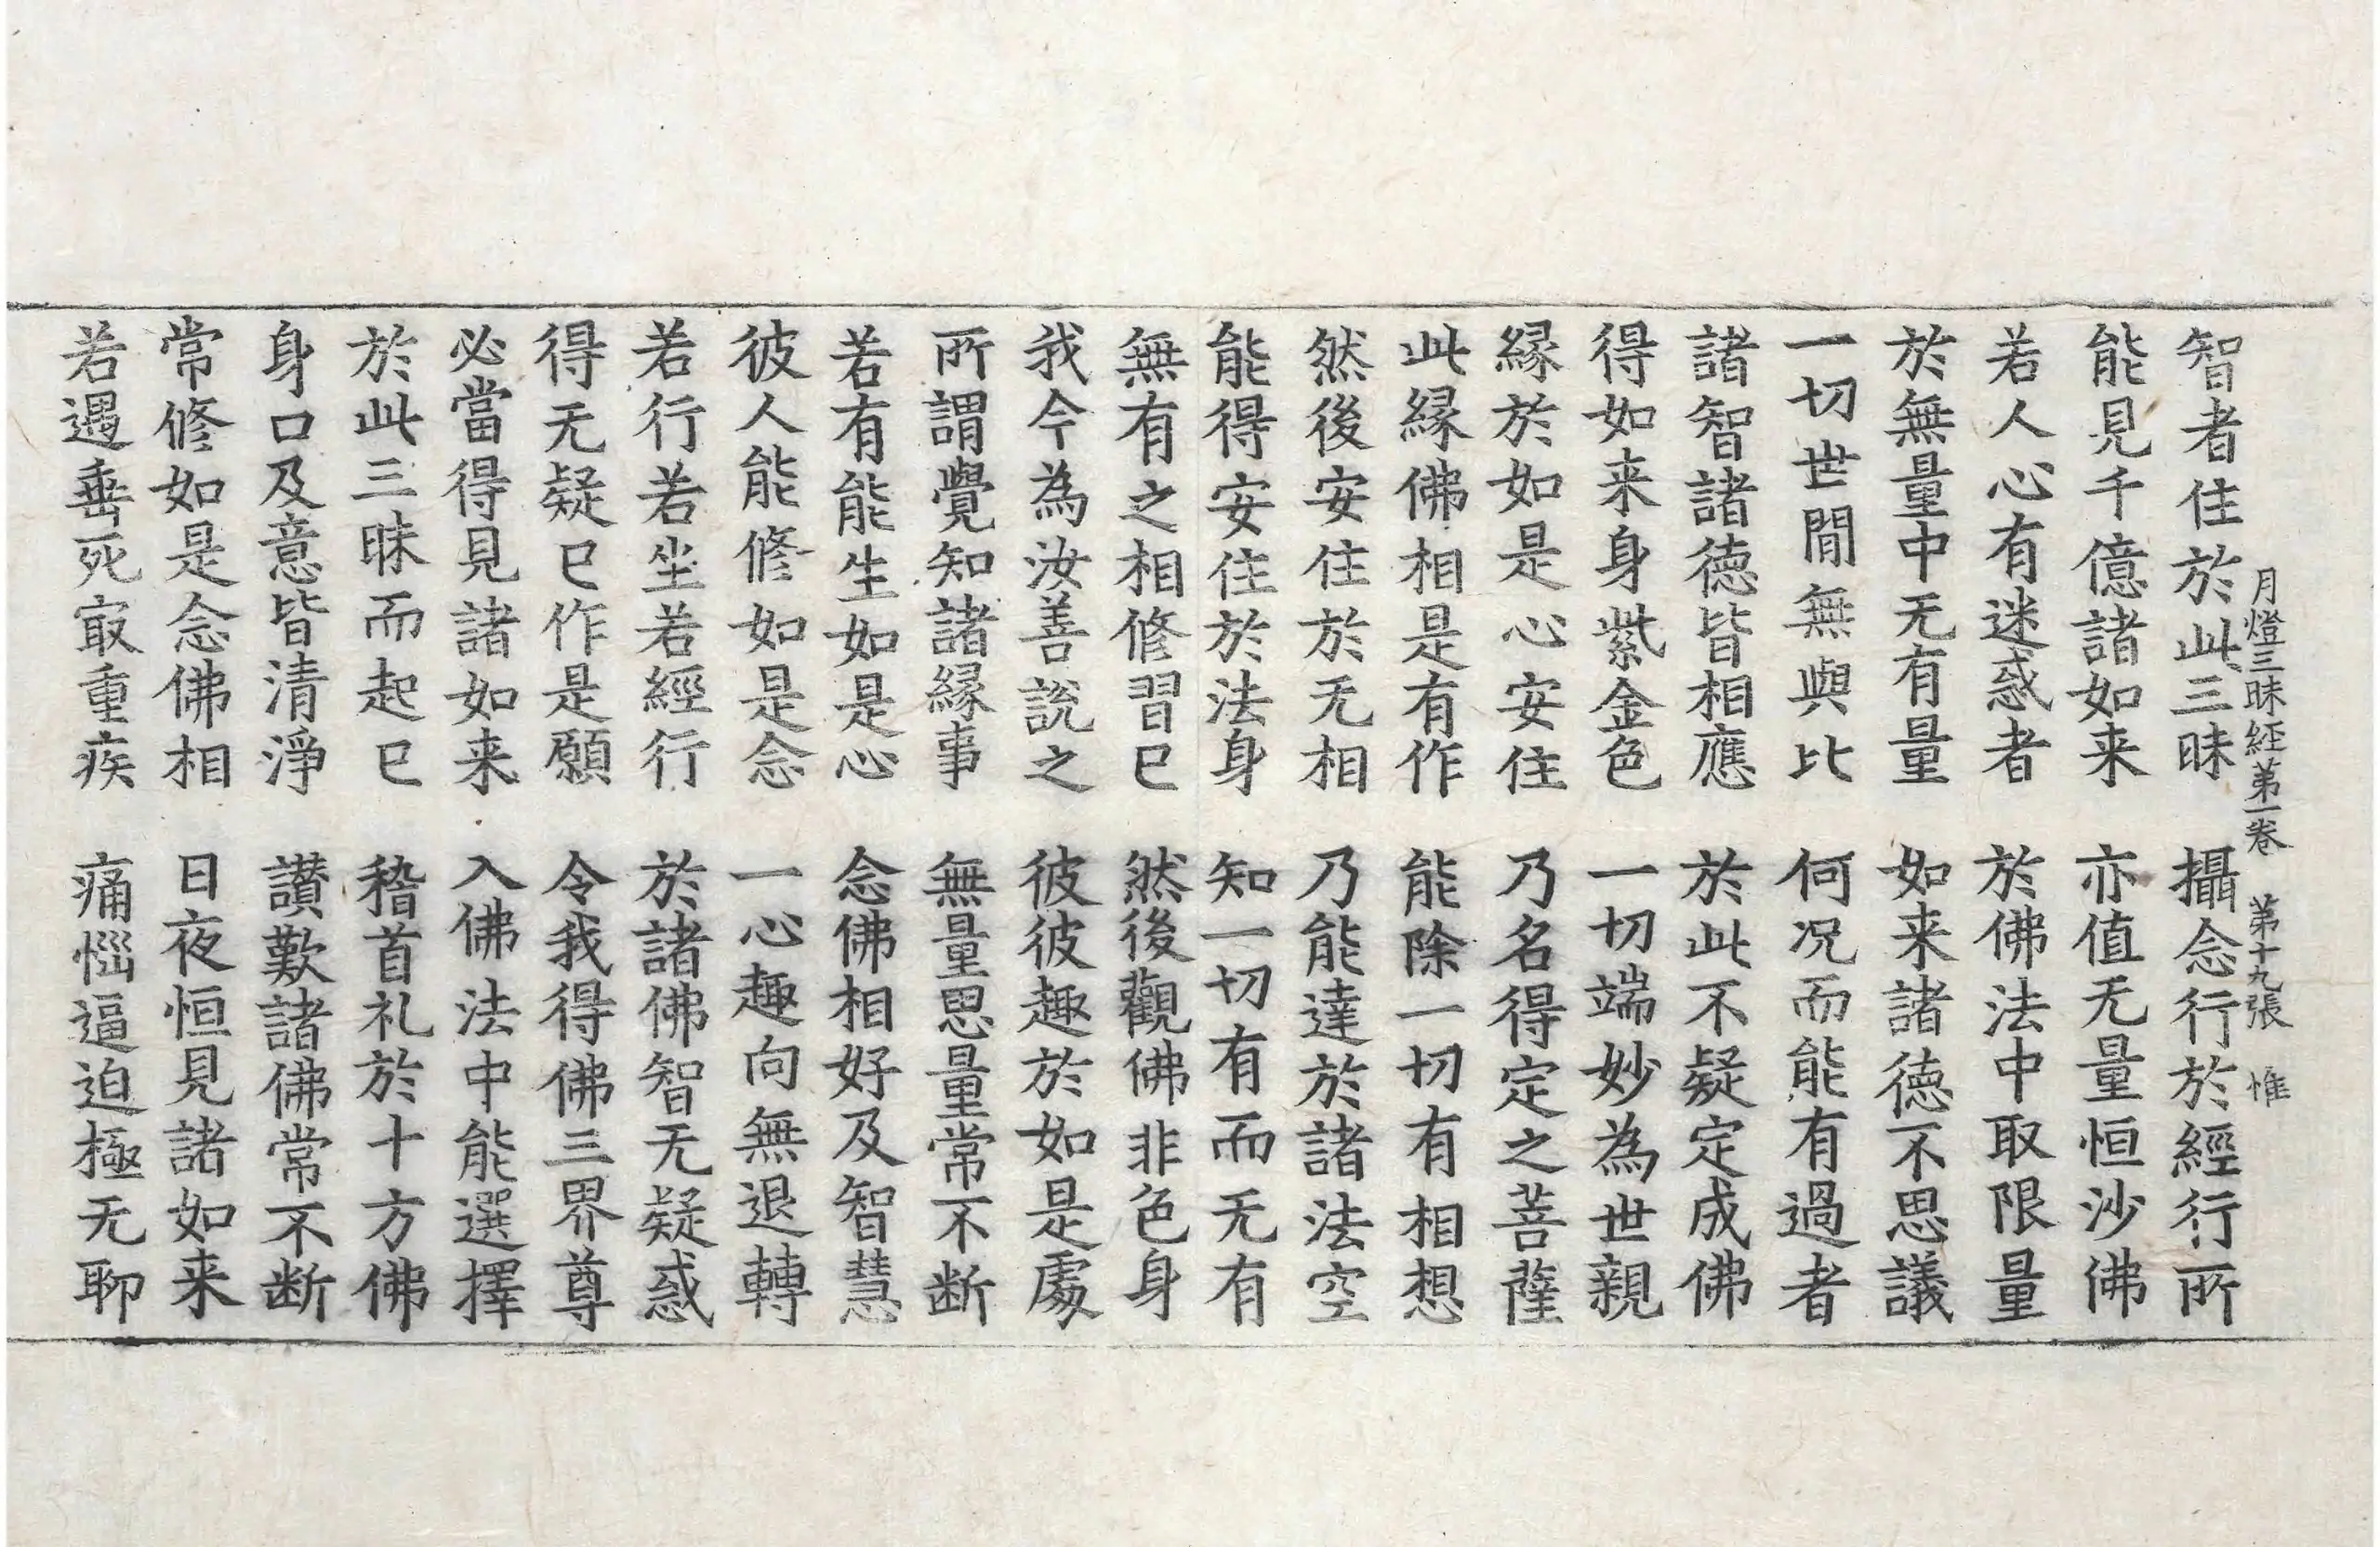 月燈三昧経第一卷 第十九張 惟
智者住於此三昧 攝念行於經行所
能見千億諸如来 亦值无量恒沙佛
若人心有迷惑者 於佛法中取限量
於無量中无有量 如来諸徳不思議
一切世間無與比 何况而能有過者
諸智諸徳皆相應 於此不疑定成佛
得如来身紫金色 一切端妙為世親
縁於如是心安住 乃名得定之菩薩
此縁佛相是有作 能除一切有相想
然後安住於无相 乃能達於諸法空
能得安住於法身 知一切有而无有
無有之相修習已 然後觀佛非色身
我今為汝善說之 彼彼趣於如是處
所謂覺知諸縁事 無量思量常不断
若有能生如是心 念佛相好及智慧
彼人能修如是念 一心趣向無退轉
若行若坐若經行 於諸佛智无疑惑
得无疑已作是願 令我得佛三界尊
必當得見諸如来 入佛法中能選擇
於此三昧而起已 稽首礼於十方佛
身口及意皆清淨 讃歎諸佛常不断
常修如是念佛相 日夜恒見諸如来
若遇垂死㝡重疾 痛惱逼迫極无聊